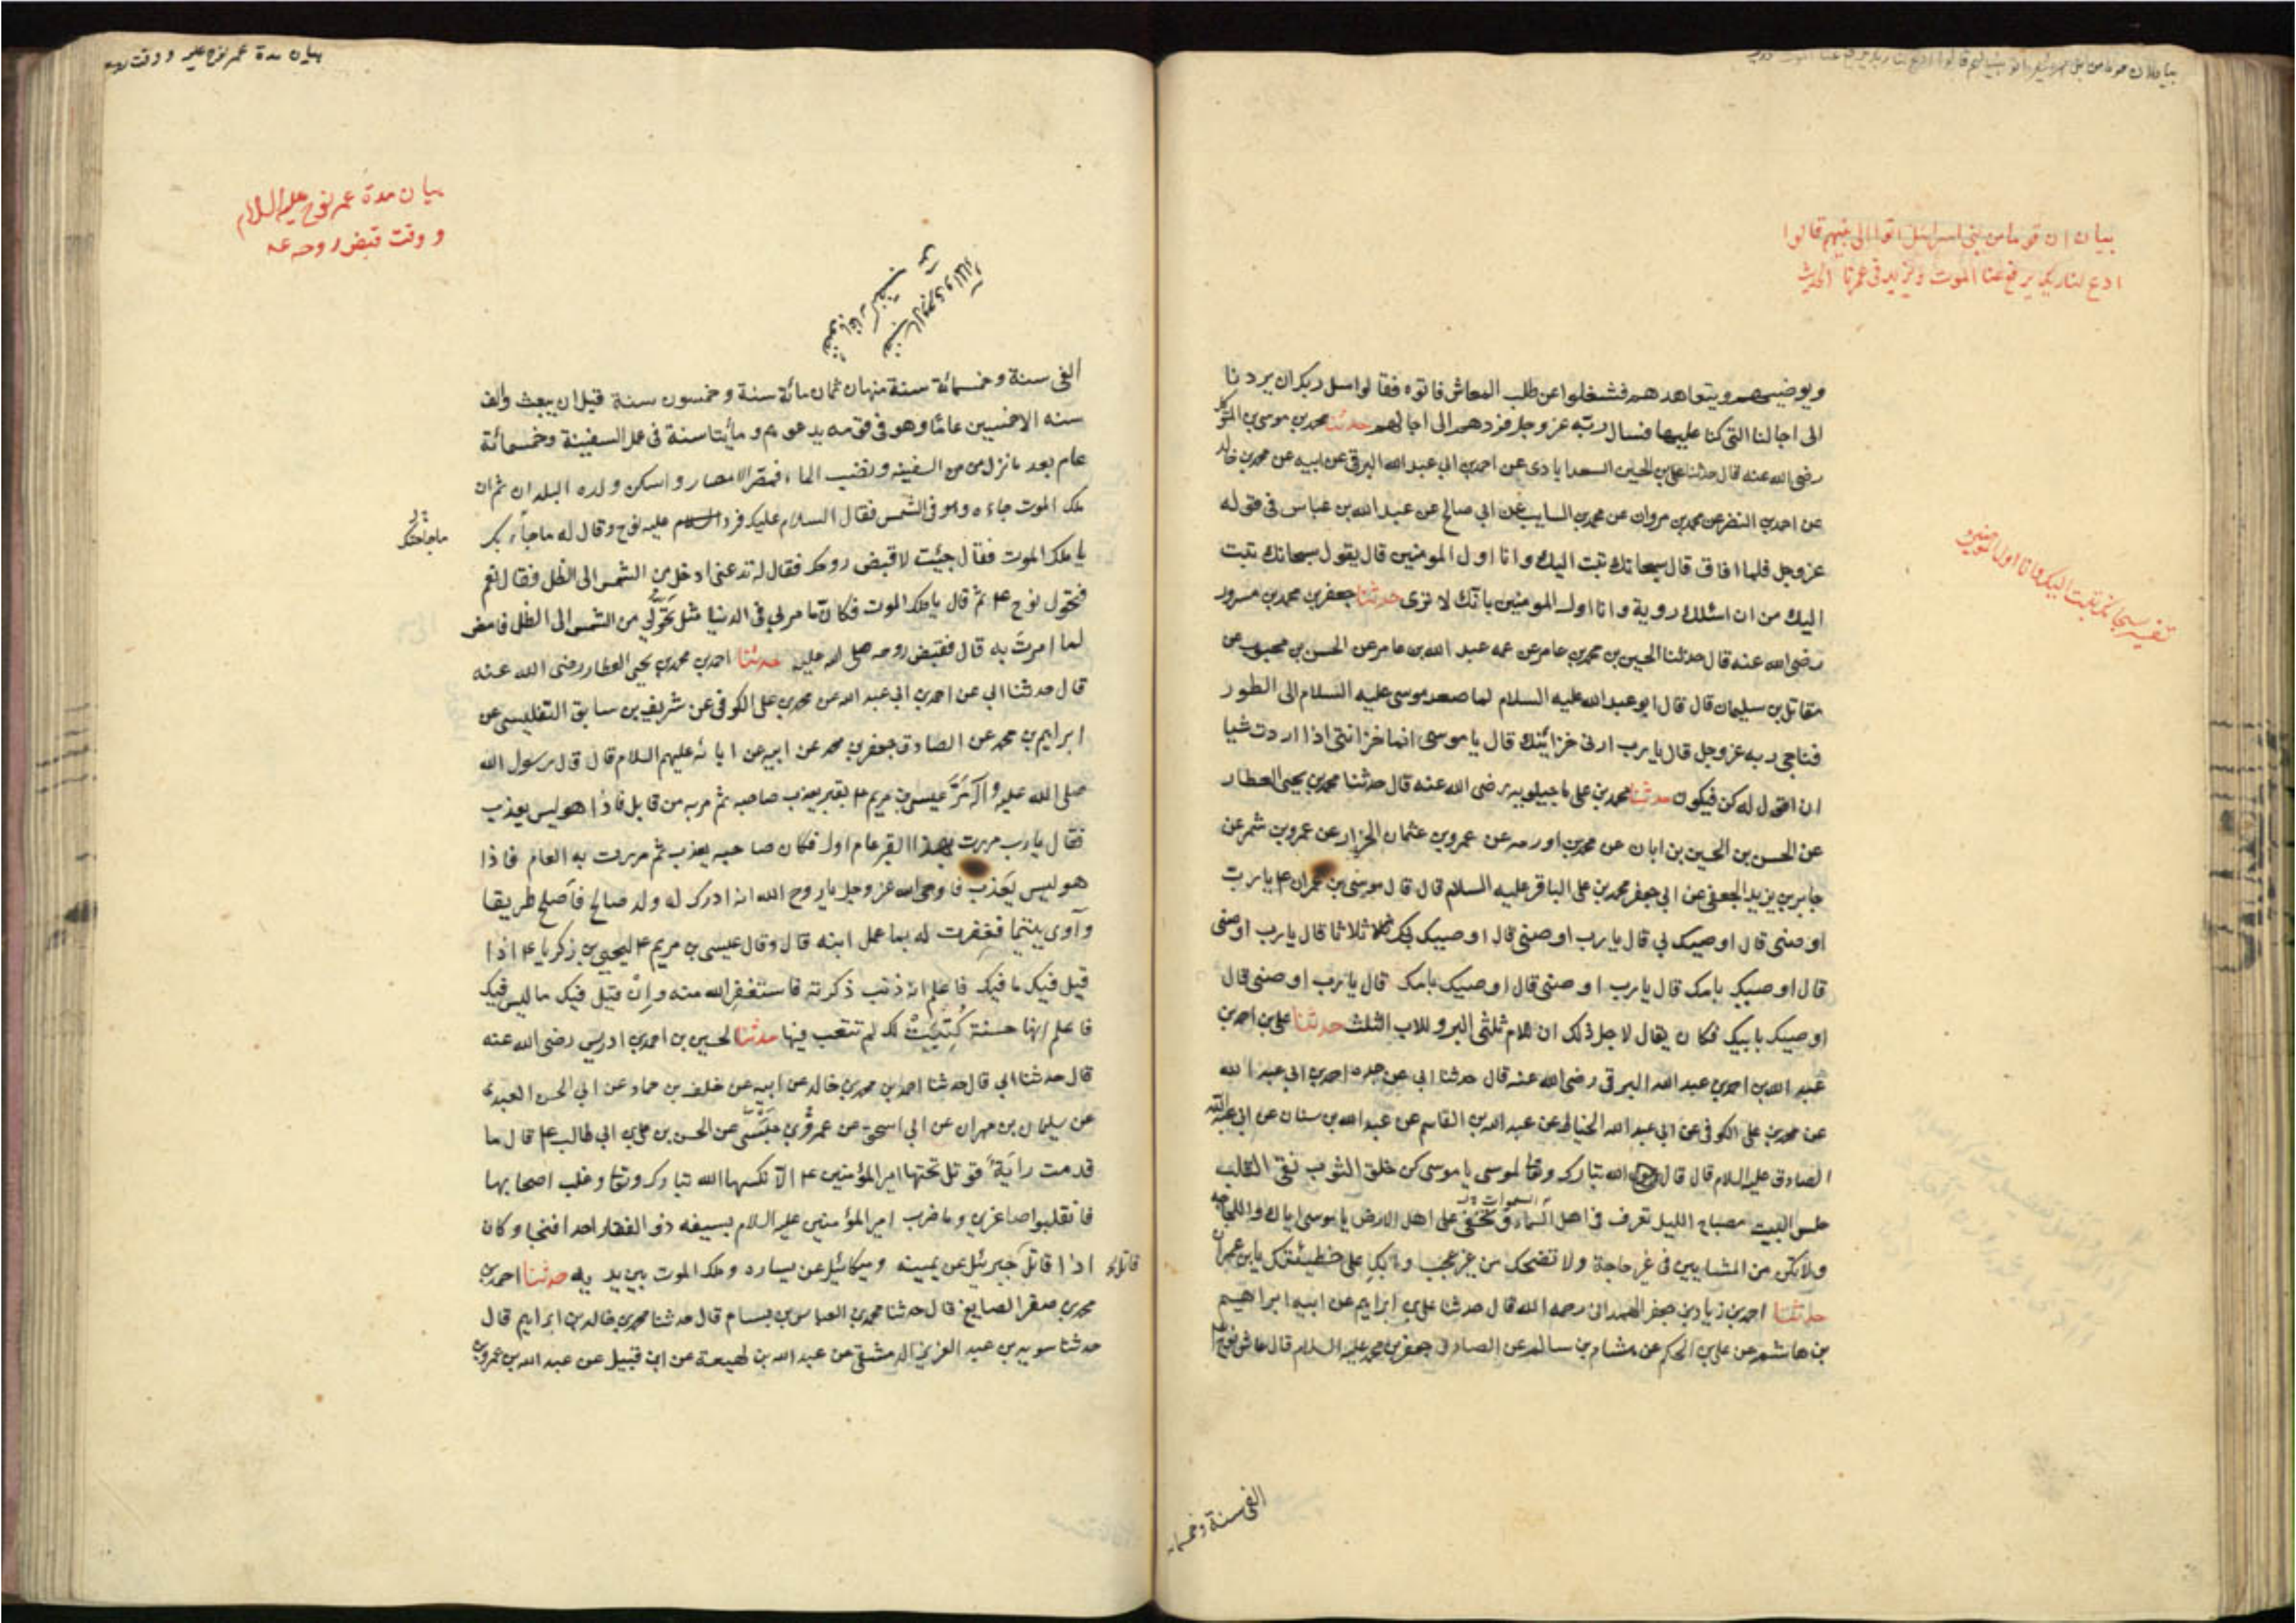 بيان ان قوما من بني اسرائيل اتوا الى نبيهم قالوا
ادع لنا ربك يرفع عنا الموت ويزيد في عمرنا الحديث
ويوضيهم ويتعاهدهم فشغلوا عن طلب المعاش فاتوه فقالوا سل ربك ان يردنا
الى اجالنا التي كنا عليها فسال ربه عز وجل فردهم الى اجالهم حدثنا محمد بن موسى بن المتوكل
رضي الله عنه قال حدثنا علي بن الحسين السعدابادي عن احمد بن ابي عبد الله البرقي عن ابيه عن محمد بن خالد
عن احمد بن النضر عن محمد بن مروان عن محمد بن السايب عن ابي صالح عن عبد الله بن عباس في قوله
عز وجل فلما افاق قال سبحانك تبت اليك وانا اول المومنين قال يقول سبحانك تبت
اليك من ان اسئلك روية وانا اول المومنين بانك لا ترى حدثنا جعفر بن محمد بن مسرور
رضي الله عنه قال حدثنا الحسين بن محمد بن عامر عن عمه عبد الله بن عامر عن الحسن بن محبوب عن
مقاتل بن سليمان قال قال ابو عبد الله عليه السلام لما صعد موسى عليه السلام الى الطور
فناجى ربه عز وجل قال يا رب ارني خزائنك قال يا موسى انما خزانتي اذا اردت شيا
ان اقول له كن فيكون حدثنا محمد بن علي ماجيلويه رضي الله عنه قال حدثنا محمد بن يحيى العطار
عن الحسن بن الحسين بن ابان عن محمد بن اورمه عن عمرو بن عثمان الخزاز عن عمرو بن شمر عن
جابر بن يزيد الجعفي عن ابي جعفر محمد بن علي الباقر عليه السلام قال قال موسى بن عمران ع يا رب
اوصني قال اوصيك بي قال يا رب اوصني قال اوصيك بك ثلاثا قال يا رب اوصني
قال اوصيك بامك قال يا رب اوصني قال اوصيك بامك قال يا رب اوصني قال
اوصيك بابيك فكان يقال لاجل ذلك ان للام ثلثي البر وللاب الثلث حدثنا علي بن احمد بن
عبد الله بن احمد بن عبد الله البرقي رضي الله عنه قال حدثنا ابي عن جده احمد بن ابي عبد الله
عن محمد بن علي الكوفي عن ابي عبد الله الخياط عن عبد الله بن القاسم عن عبد الله بن سنان عن ابي عبد الله
الصادق عليه السلام قال قال الله تبارك وتعا لموسى يا موسى كن خلق الثوب نقي القلب
حلس البيت مصباح الليل تعرف في اهل السماء وتخفى على اهل الارض يا موسى اياك واللجاجه
ولا تكن من المشايين في غير حاجة ولا تضحك من غير عجب وابك على خطيئتك يا بن عمران
حدثنا احمد بن زياد بن جعفر الهمداني رحمه الله قال حدثنا علي بن ابراهيم عن ابيه ابراهيم
بن هاشم عن علي بن الحكم عن هشام بن سالم عن الصادق جعفر بن محمد عليه السلام قال عاش نوح
تفسير سبحانك تبت اليك وانا اول المؤمنين
الفي سنة وخمسمائه
بيان مدة عمر نوح عليه السلام
و وقت قبض روحه ع
الفي سنة وخمسمائة سنة منها ثمان مائة سنة وخمسون سنة قبل ان يبعث والف
سنه الا خمسين عاما وهو في قومه يدعوهم ومأيتا سنة في عمل السفينة وخمسمائة
عام بعد ما نزل من السفينه ونضب الماء فمصر الامصار واسكن ولده البلدان ثم ان
ملك الموت جاءه وهو في الشمس فقال السلام عليك فرد السلام عليه نوح وقال له ما جاء بك
يا ملك الموت فقال جئت لاقبض روحك فقال له تدعني ادخل من الشمس الى الظل فقال نعم
فتحول نوح ع ثم قال يا ملك الموت فكان ما مر بي في الدنيا مثل تحولي من الشمس الى الظل فامض
لما امرت به قال فقبض روحه صلى الله عليه حدثنا احمد بن محمد بن يحيى العطار رضي الله عنه
قال حدثنا ابي عن احمد بن ابي عبد الله عن محمد بن علي الكوفي عن شريف بن سابق التفليسي عن
ابراهيم بن محمد عن الصادق جعفر بن محمد عن ابيه عن ابائه عليهم السلام قال قال رسول الله
صلى الله عليه وآله مر عيسى بن مريم ع بقبر يعذب صاحبه ثم مر به من قابل فاذا هو ليس يعذب
فقال يا رب مررت بهذا القبر عام اول فكان صاحبه يعذب ثم مررت به العام فاذا
هو ليس يعذب فاوحى الله عز وجل يا روح الله انه ادرك له ولد صالح فاصلح طريقا
وآوى يتيما فغفرت له بما عمل ابنه قال وقال عيسى بن مريم ع ليحيى بن زكريا ع اذا
قيل فيك ما فيك فاعلم انه ذنب ذكرته فاستغفر الله منه وان قيل فيك ما ليس فيك
فاعلم انها حسنة كتبت لك لم تتعب فيها حدثنا الحسين بن احمد بن ادريس رضي الله عنه
قال حدثنا ابي قال حدثنا احمد بن محمد بن خالد عن ابيه عن خلف بن حماد عن ابي الحسن العبدي
عن سليمان بن مهران عن ابي اسحق عن عمرو بن حبشي عن الحسن بن علي بن ابي طالب ع قال ما
قدمت راية قوتل تحتها امير المؤمنين ع الا نكسها الله تبارك وتعا وغلب اصحابها
فانقلبوا صاغرين وما ضرب امير المؤمنين عليه السلام بسيفه ذو الفقار احدا فنجا وكان
اذا قاتل جبرئيل عن يمينه وميكائيل عن يساره وملك الموت بين يديه حدثنا احمد بن
محمد بن صقر الصايغ قال حدثنا محمد بن العباس بن بسام قال حدثنا محمد بن خالد بن ابراهيم قال
حدثنا سويد بن عبد العزيز الدمشقي عن عبد الله بن لهيعة عن ابن قبيل عن عبد الله بن عمرو بن